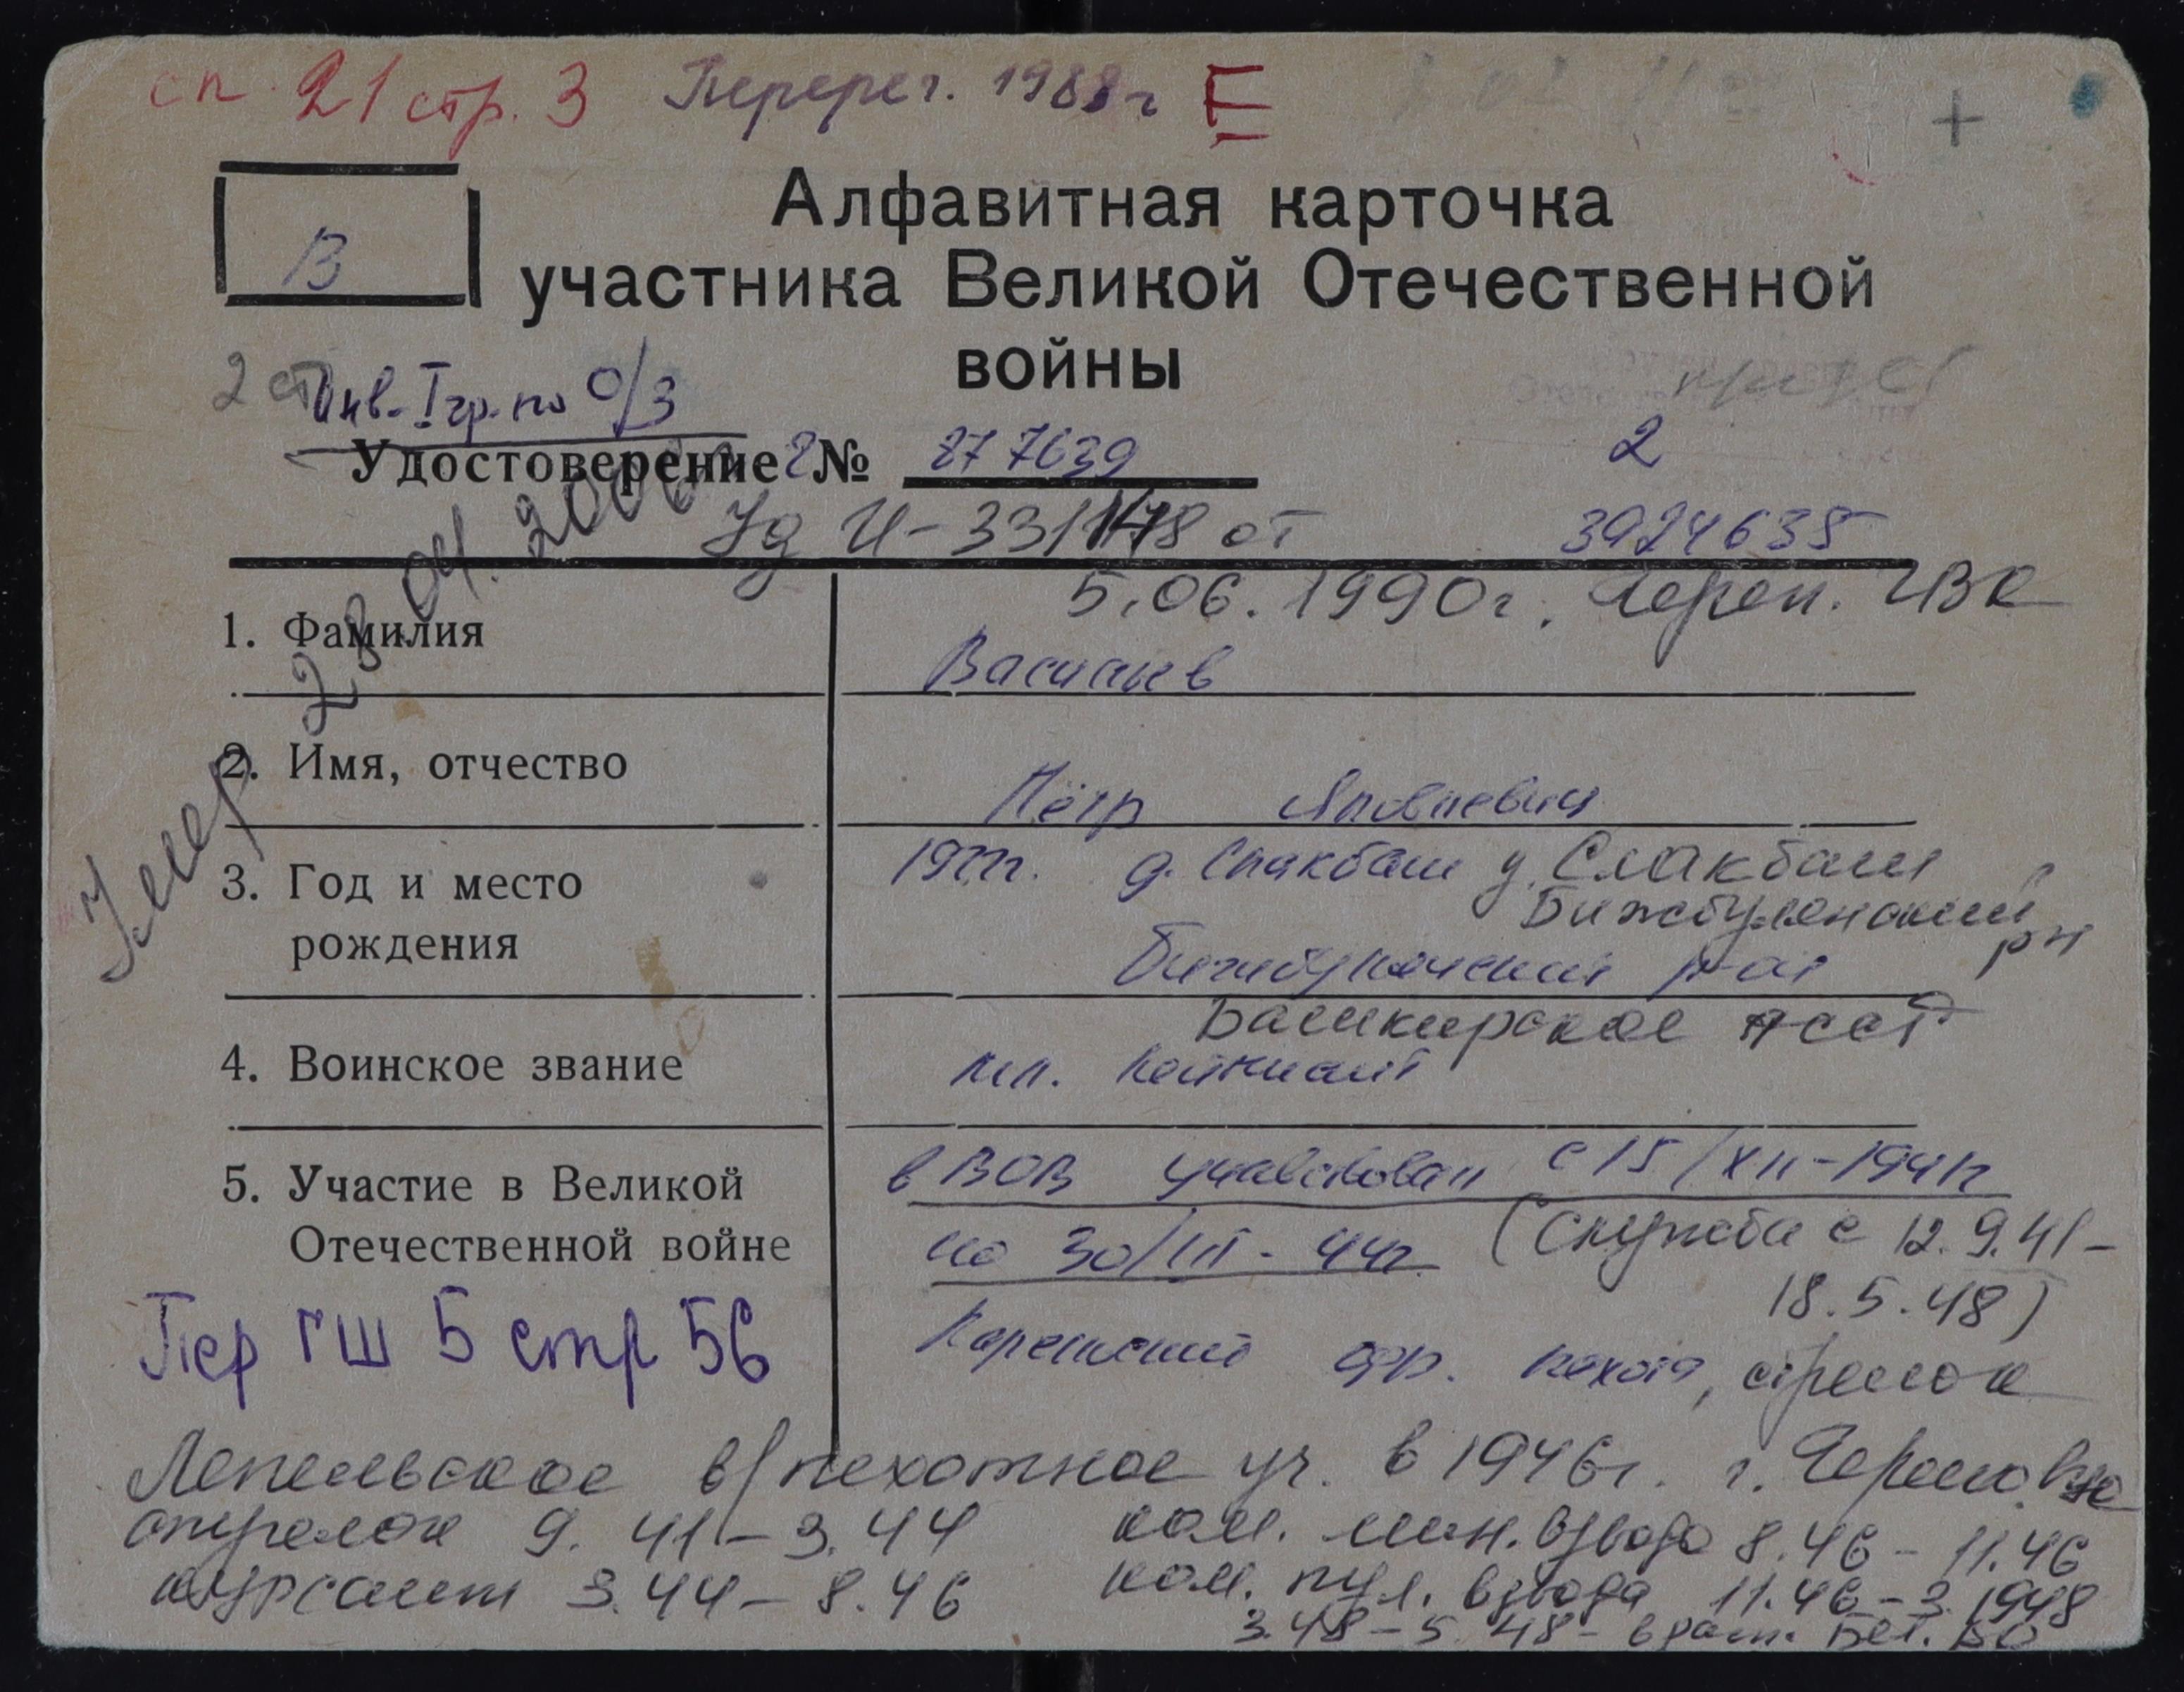 сп. 21 стр. 3 Перерег. 1988г Е
+
В
Алфавитная карточка
участника Великой Отечественной
войны
2 ст
Инв. I гр. по О/З
Удостоверение № 277639
2
3924635
Уд И-331 от
5.06.1990г. Череп. ГВК
Умер 28.04.2000
1. Фамилия Васильев
2. Имя, отчество Пётр Яковлевич
3. Год и место
рождения
1922г. д. Слакбаш д. Слакбаш
Бижбулякский р-н
Бижбулякский р-он
Башкирской АССР
4. Воинское звание мл. лейтенант
5. Участие в Великой
Отечественной войне
в ВОВ участвовал с 15/XII-1941г
по 30/III-44г (Служба с 12.9.41-
18.5.48)
Карельский фр. пехота, стрелок
Пер ГШ 5 стр 56
Лепельское в/пехотное уч. в 1946г. г. Череповце
стрелок 9.41-3.44 ком. мин. взвода 8.46-11.46
курсант 3.44-8.46 ком. пул. взвода 11.46-3.1948
3.48-5.48- в расп. Бел. ВО